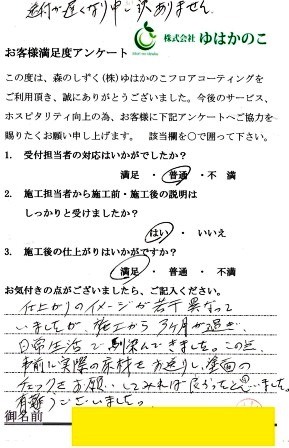 送付が遅くなり申し訳ありません。
株式会社 ゆはかのこ
お客様満足度アンケート
この度は、森のしずく(株)ゆはかのこフロアコーティングを
ご利用頂き、誠にありがとうございました。今後のサービス、
ホスピタリティ向上の為、お客様に下記アンケートへご協力を
賜りたくお願い申し上げます。 該当欄を○で囲って下さい。
1. 受付担当者の対応はいかがでしたか?
満足 ・ 普通 ・ 不満
2. 施工担当者から施工前・施工後の説明は
しっかりと受けましたか?
はい ・ いいえ
3. 施工後の仕上がりはいかがですか?
満足 ・ 普通 ・ 不満
お気付きの点がございましたら、ご記入ください。
仕上がりのイメージが若干異なって
いましたが、施工から3ヶ月が過ぎ
日常生活で馴染んできました。この点
事前に実際の床材をお送りし、塗面の
チェックをお願いしてみれば良かったと思いました。
有難うございました。
御名前